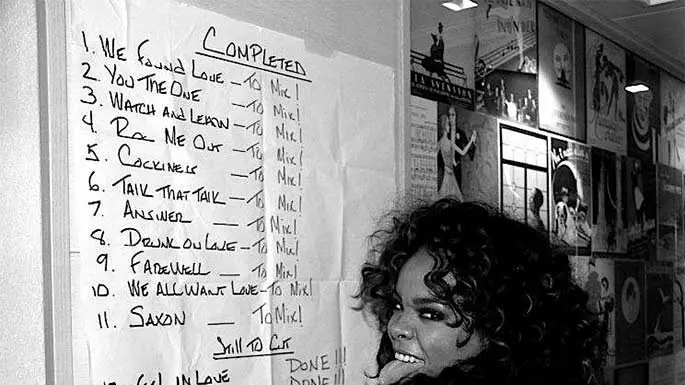 COMPLETED
1. WE FOUND LOVE – TO MIX!
2. YOU THE ONE – TO MIX!
3. WATCH AND LEARN – TO MIX!
4. ROC ME OUT – TO MIX!
5. COCKINESS – TO MIX!
6. TALK THAT TALK – TO MIX!
7. ANSWER – TO MIX!
8. DRUNK ON LOVE – TO MIX!
9. FAREWELL – TO MIX!
10. WE ALL WANT LOVE – TO MIX!
11. SAXON – TO MIX!
STILL TO CUT
IN LOVE DONE!!!
DONE!!!